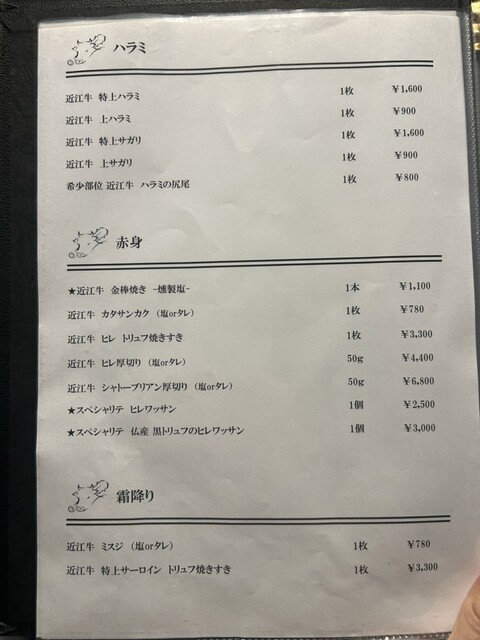 ハラミ
近江牛 特上ハラミ 1枚 ￥1,600
近江牛 上ハラミ 1枚 ￥900
近江牛 特上サガリ 1枚 ￥1,600
近江牛 上サガリ 1枚 ￥900
希少部位 近江牛 ハラミの尻尾 1枚 ￥800
赤身
★近江牛 金棒焼き -燻製塩- 1本 ￥1,100
近江牛 カタサンカク（塩orタレ） 1枚 ￥780
近江牛 ヒレ トリュフ焼きすき 1枚 ￥3,300
近江牛 ヒレ厚切り（塩orタレ） 50g ￥4,400
近江牛 シャトーブリアン厚切り（塩orタレ） 50g ￥6,800
★スペシャリテ ヒレワッサン 1個 ￥2,500
★スペシャリテ 仏産 黒トリュフのヒレワッサン 1個 ￥3,000
霜降り
近江牛 ミスジ（塩orタレ） 1枚 ￥780
近江牛 特上サーロイン トリュフ焼きすき 1枚 ￥3,300